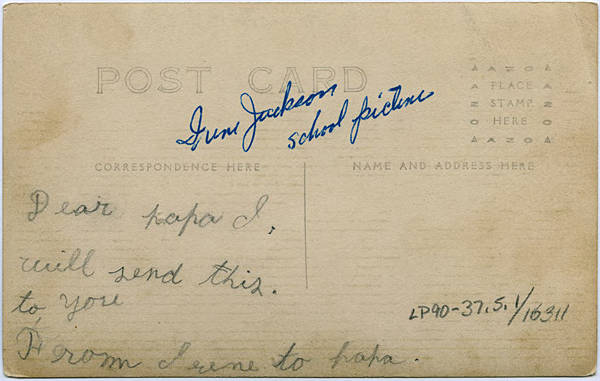 POST CARD
Irene Jackson
school picture
AZO
PLACE
STAMP
HERE
AZO
CORRESPONDENCE HERE
NAME AND ADDRESS HERE
Dear papa I.
will send this.
to you
From Irene to papa.
LP90-37.5.1/16311